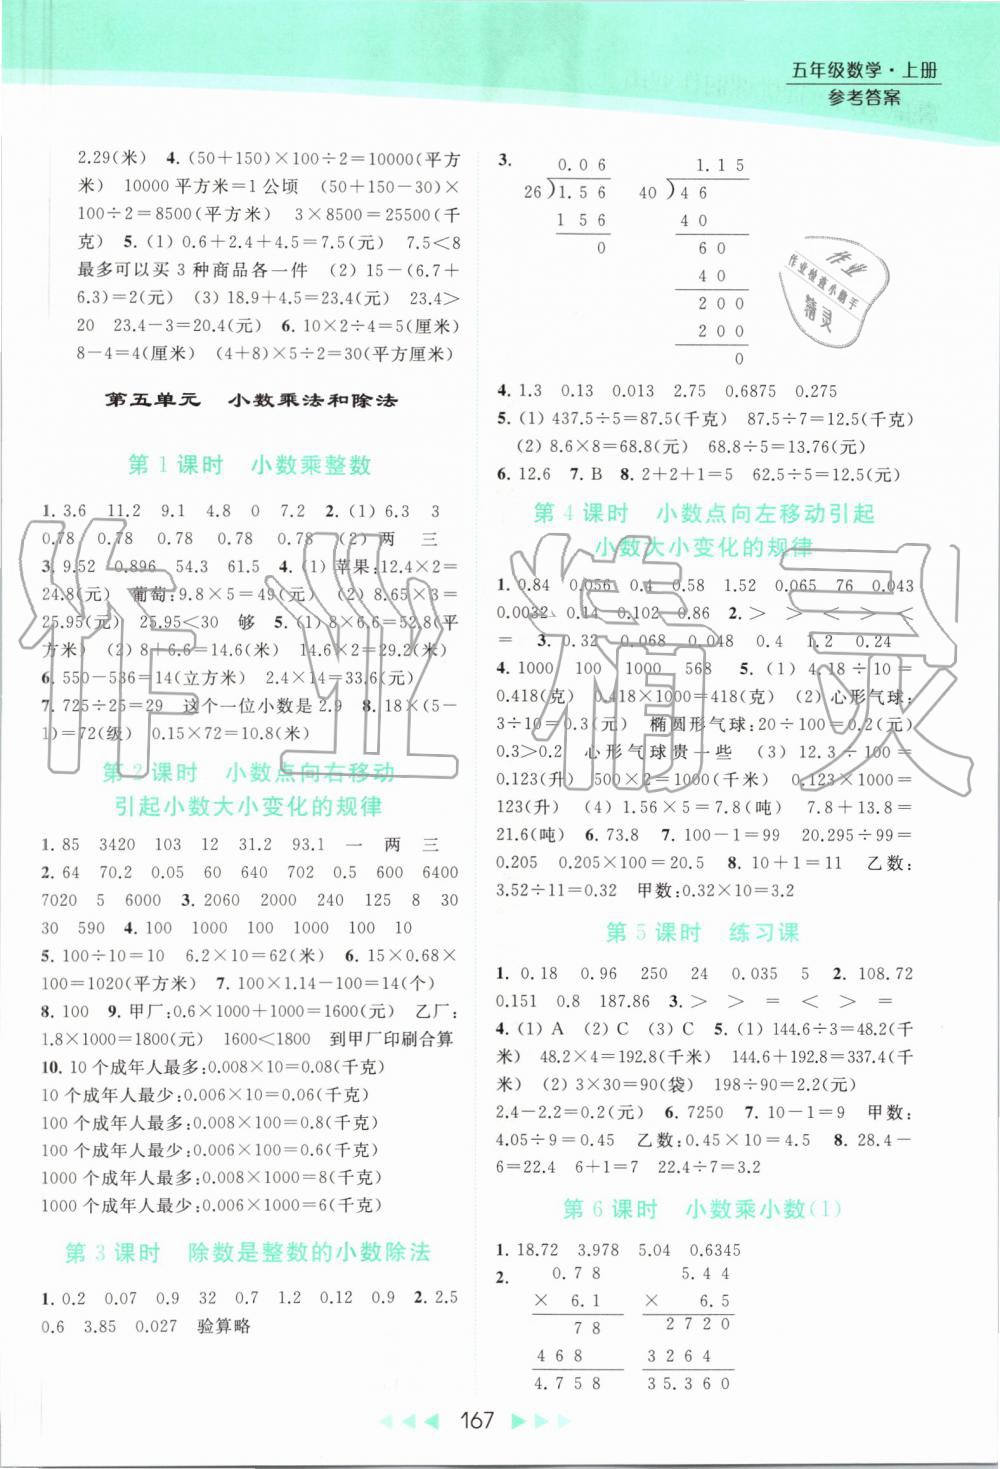 五年级数学·上册
参考答案
2.29(米) 4. (50+150)×100÷2=10000(平方
米) 10000平方米=1公顷 (50+150-30)×
100÷2=8500(平方米) 3×8500=25500(千
克) 5. (1) 0.6+2.4+4.5=7.5(元) 7.5<8
最多可以买3种商品各一件 (2) 15-(6.7+
6.3)=2(元) (3) 18.9+4.5=23.4(元) 23.4>
20 23.4-3=20.4(元) 6. 10×2÷4=5(厘米)
8-4=4(厘米) (4+8)×5÷2=30(平方厘米)
第五单元 小数乘法和除法
第1课时 小数乘整数
1. 3.6 11.2 9.1 4.8 0 7.2 2. (1) 6.3 3
0.78 0.78 0.78 0.78 0.78 (2) 两 三
3. 9.52 0.896 54.3 61.5 4. (1) 苹果:12.4×2=
24.8(元) 葡萄:9.8×5=49(元) (2) 8.65×3=
25.95(元) 25.95<30 够 5. (1) 8×6.6=52.8(平
方米) (2) 8+6.6=14.6(米) 14.6×2=29.2(米)
6. 550-536=14(立方米) 2.4×14=33.6(元)
7. 725÷25=29 这个一位小数是2.9 8. 18×(5-
1)=72(级) 0.15×72=10.8(米)
第2课时 小数点向右移动
引起小数大小变化的规律
1. 85 3420 103 12 31.2 93.1 一 两 三
2. 64 70.2 0.05 60 640 702 0.5 600 6400
7020 5 6000 3. 2060 2000 240 125 8 30
30 590 4. 100 1000 100 1000 100 10
5. 100÷10=10 6.2×10=62(米) 6. 15×0.68×
100=1020(平方米) 7. 100×1.14-100=14(个)
8. 100 9. 甲厂:0.6×1000+1000=1600(元) 乙厂:
1.8×1000=1800(元) 1600<1800 到甲厂印刷合算
10. 10个成年人最多:0.008×10=0.08(千克)
10个成年人最少:0.006×10=0.06(千克)
100个成年人最多:0.008×100=0.8(千克)
100个成年人最少:0.006×100=0.6(千克)
1000个成年人最多:0.008×1000=8(千克)
1000个成年人最少:0.006×1000=6(千克)
第3课时 除数是整数的小数除法
1. 0.2 0.07 0.9 32 0.7 1.2 0.12 0.9 2. 2.5
0.6 3.85 0.027 验算略
3. 0.06 1.15
26)1.56 40)46
156 40
0 60
40
200
200
0
4. 1.3 0.13 0.013 2.75 0.6875 0.275
5. (1) 437.5÷5=87.5(千克) 87.5÷7=12.5(千克)
(2) 8.6×8=68.8(元) 68.8÷5=13.76(元)
6. 12.6 7. B 8. 2+2+1=5 62.5÷5=12.5(元)
第4课时 小数点向左移动引起
小数大小变化的规律
1. 0.84 0.056 0.4 0.58 1.52 0.065 76 0.043
0.0032 0.14 0.102 0.86 2. > > < > <
= 3. 0.32 0.068 0.048 0.4 1.2 0.24
4. 1000 100 1000 568 5. (1) 4.18÷10=
0.418(克) 0.418×1000=418(克) (2) 心形气球:
3÷10=0.3(元) 椭圆形气球:20÷100=0.2(元)
0.3>0.2 心形气球贵一些 (3) 12.3÷100=
0.123(升) 500×2=1000(千米) 0.123×1000=
123(升) (4) 1.56×5=7.8(吨) 7.8+13.8=
21.6(吨) 6. 73.8 7. 100-1=99 20.295÷99=
0.205 0.205×100=20.5 8. 10+1=11 乙数:
3.52÷11=0.32 甲数:0.32×10=3.2
第5课时 练习课
1. 0.18 0.96 250 24 0.035 5 2. 108.72
0.151 0.8 187.86 3. > > = < > =
4. (1) A (2) C (3) C 5. (1) 144.6÷3=48.2(千
米) 48.2×4=192.8(千米) 144.6+192.8=337.4(千
米) (2) 3×30=90(袋) 198÷90=2.2(元)
2.4-2.2=0.2(元) 6. 7250 7. 10-1=9 甲数:
4.05÷9=0.45 乙数:0.45×10=4.5 8. 28.4-
6=22.4 6+1=7 22.4÷7=3.2
第6课时 小数乘小数(1)
1. 18.72 3.978 5.04 0.6345
2. 0.78 5.44
× 6.1 × 6.5
78 2720
468 3264
4.758 35.360
167
作业
作业检查小助手
精灵
作业精灵